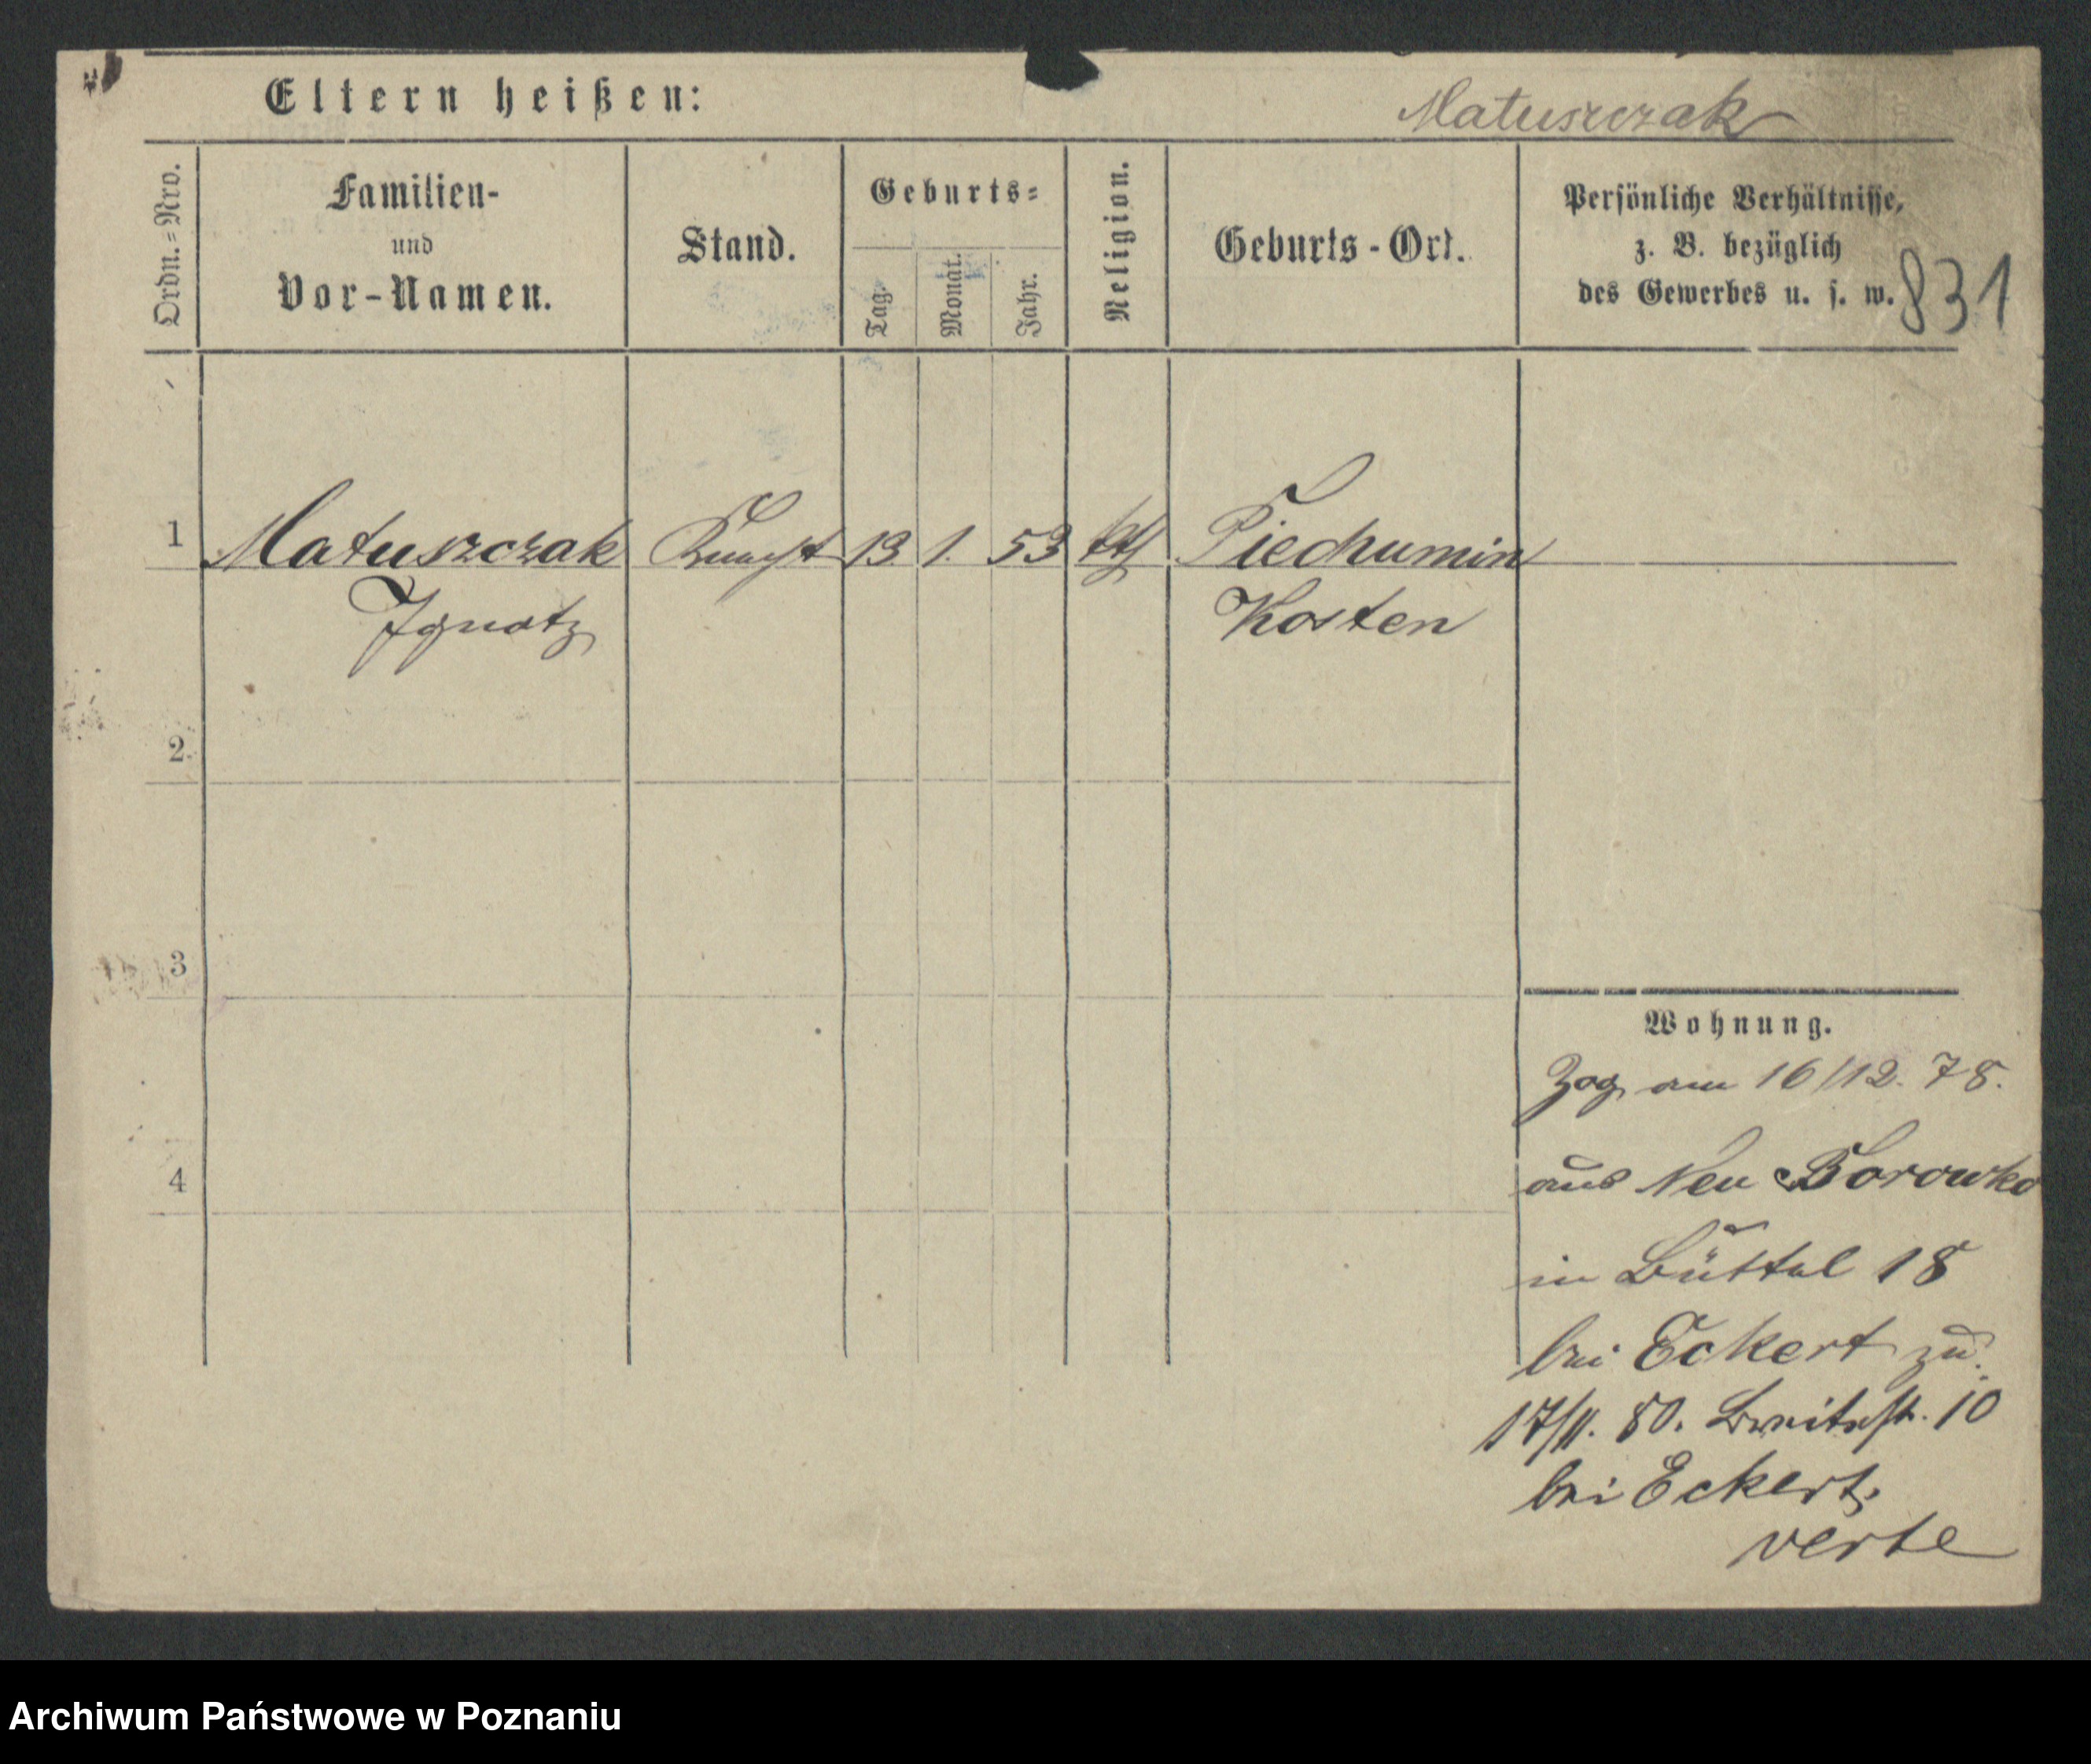 Eltern heißen:
Matuszczak
Ordn.=Nro.
Familien-
und
Vor-Namen.
Stand.
Geburts=
Tag.
Monat.
Jahr.
Religion.
Geburts-Ort.
Persönliche Verhältnisse,
z. B. bezüglich
des Gewerbes u. s. w.
831
1 Matuszczak Knecht 13 1. 53 kth Piechumin
Ignatz Kosten
2
3
4
Wohnung.
Zog am 16/12. 78.
aus Neu Borowko
in Büttel 18
bei Eckert zu.
17/11. 80. Breitestr. 10
bei Eckert,
verte
Archiwum Państwowe w Poznaniu